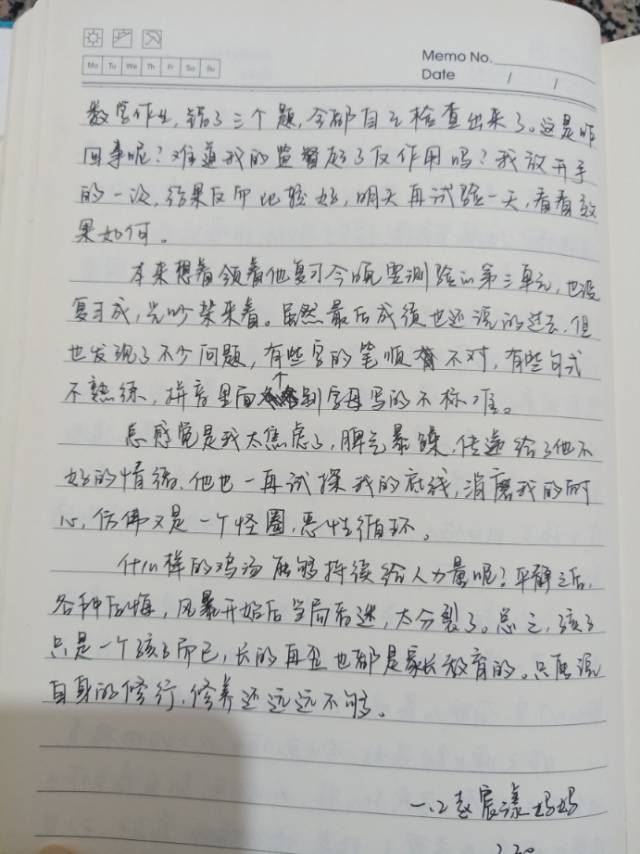 Memo No.
Mo Tu We Th Fr Sa Su
Date / /
数学作业,错了三个题,全都自己检查出来了。这是咋
回事呢?难道我的监督起了反作用吗?我放开手
的一次,结果反而比较好,明天再试验一天,看看效
果如何。
本来想着领着他复习今晚要测验的第三单元,也没
复习成,光吵架来着。虽然最后成绩也还说的过去,但
也发现了不少问题,有些字的笔顺不对,有些句式
不熟练,拼音里面个别字母写的不标准。
总感觉是我太焦虑了,脾气暴躁,传递给了他不
好的情绪,他也一再试探我的底线,消磨我的耐
心,仿佛又是一个怪圈,恶性循环。
什么样的鸡汤能够持续给人力量呢?平静之后,
各种后悔,风暴开始后当局者迷,太分裂了。总之,孩子
只是一个孩子而已,长的再歪也都是家长教育的。只能说
自身的修行,修养还远远不够。
一.2赵宸漾妈妈